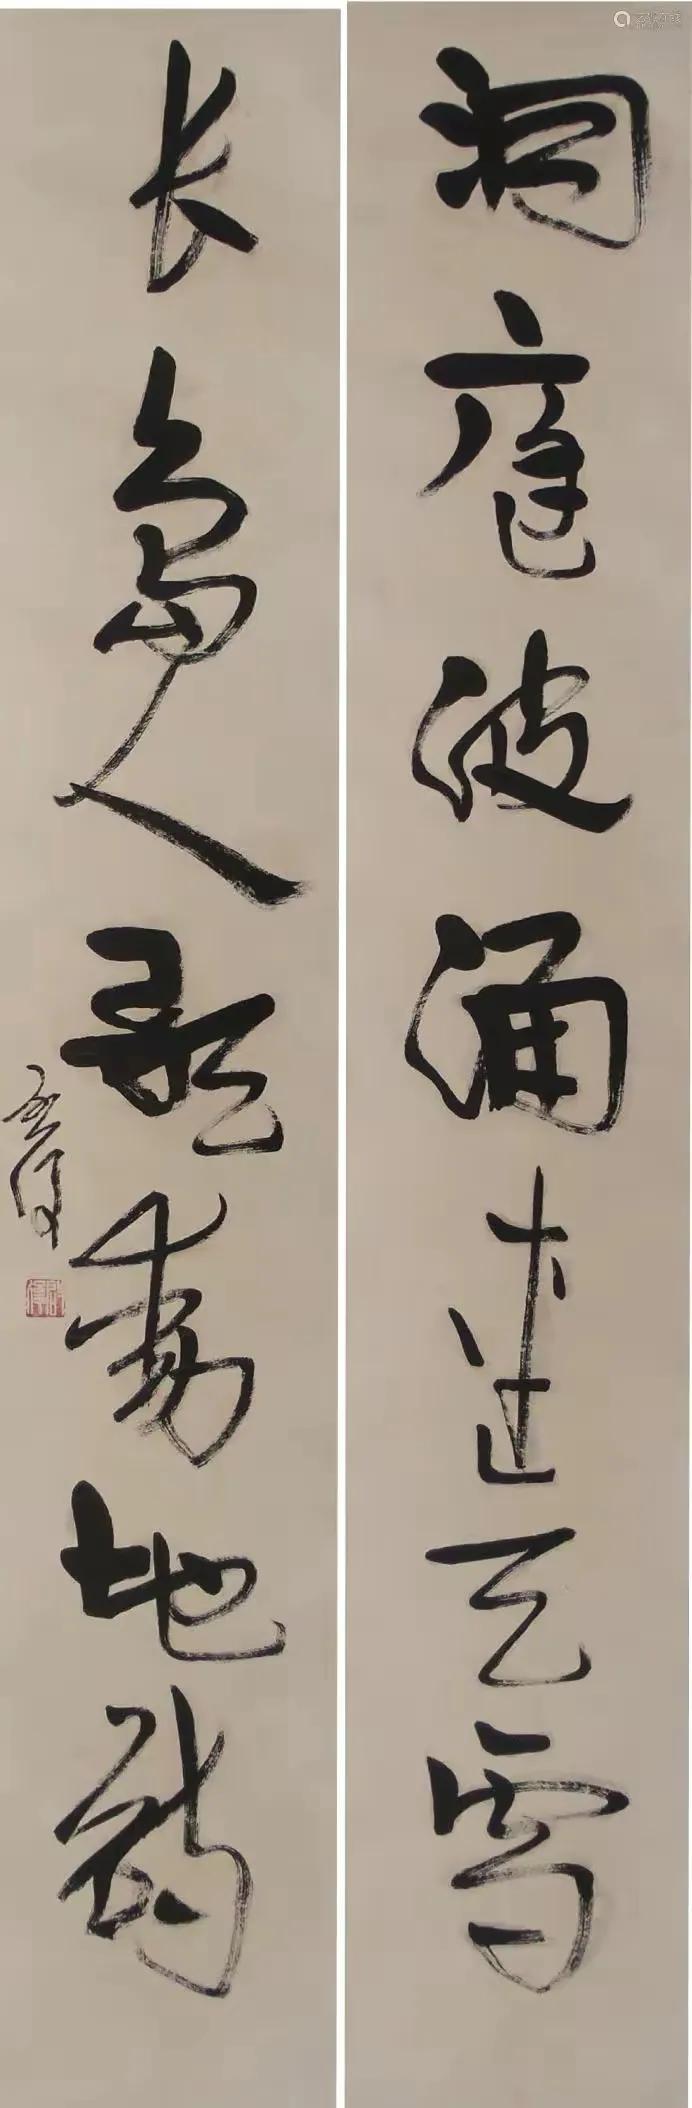 洞庭波涌连天雪
长岛人歌动地诗
启厚